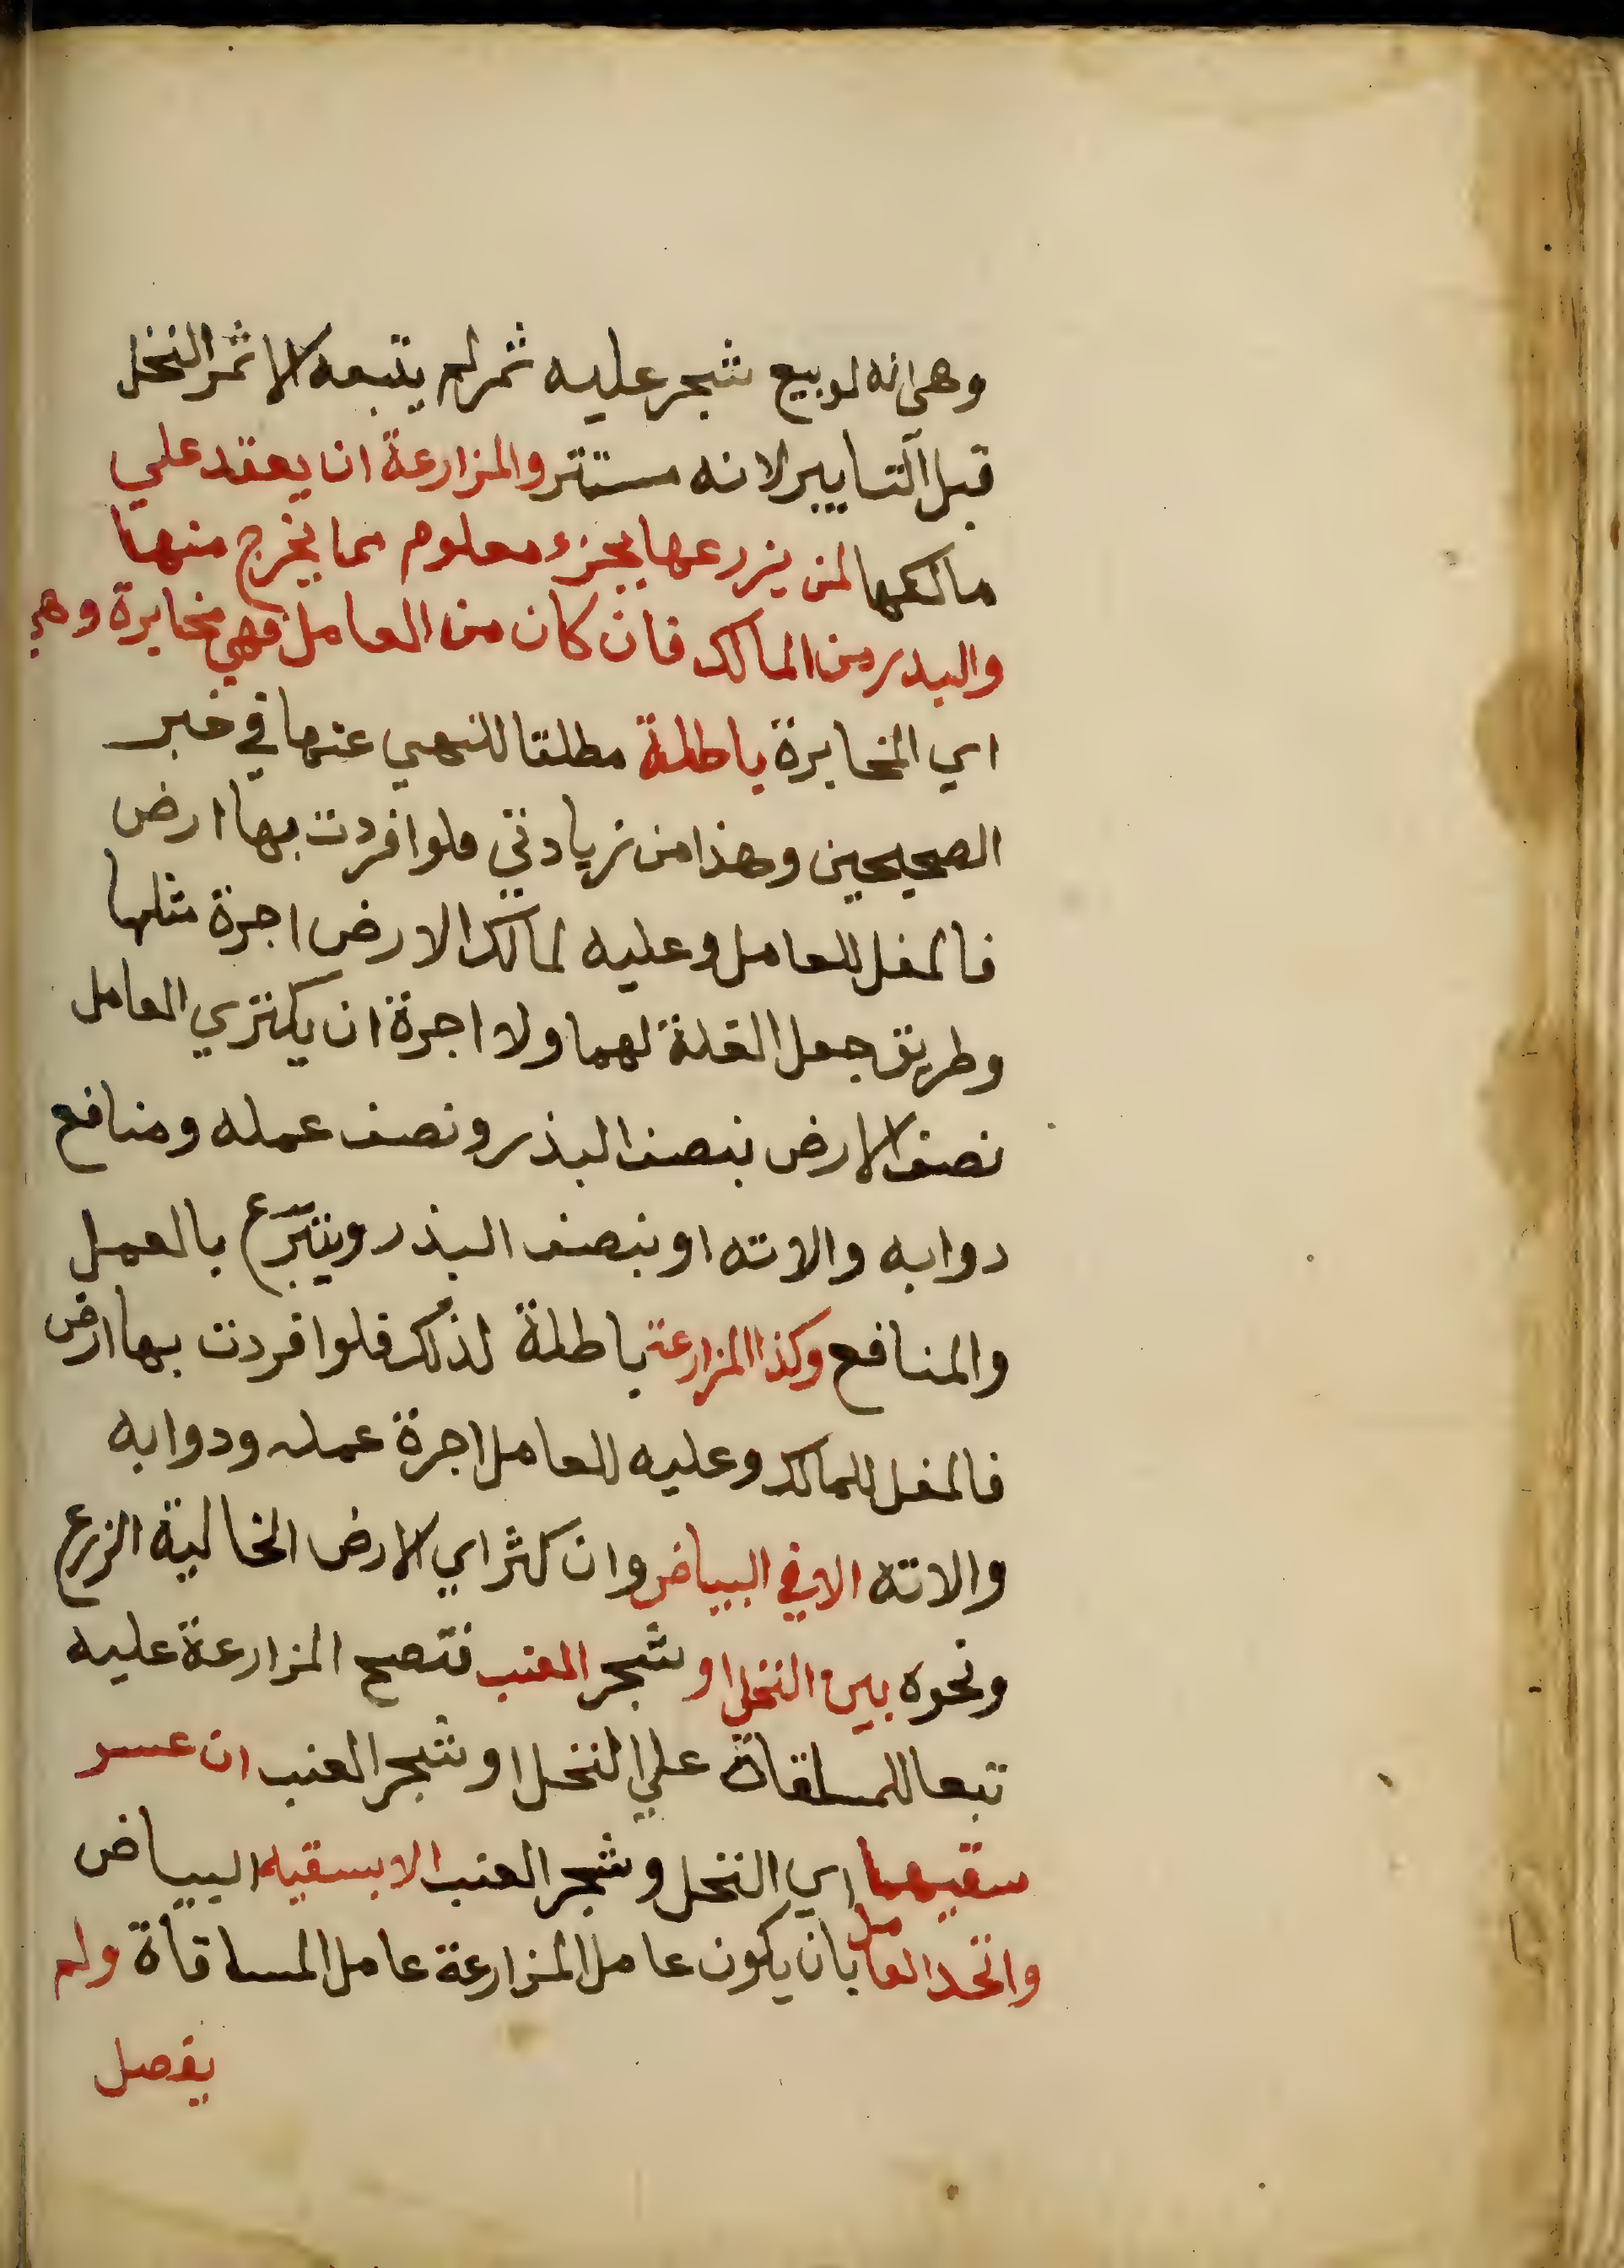 وهي انه لو بيع شجر عليه ثمر لم يتبعه الا ثمر النخل
قبل التابير لانه مستتر والمزارعة ان يعقد علي
مالكها لمن يزرعها بجزء معلوم مما يخرج منها
والبدر من المالك فان كان من العامل فهي مخابرة وهي
اي المخابرة باطلة مطلقا للنهي عنها في خبر
الصحيحين وهذا من زيادتي فلو افردت بها ارض
فالمغل للعامل وعليه لمالك الارض اجرة مثلها
وطريق جعل الغلة لهما ولا اجرة ان يكتري العامل
نصف الارض بنصف البذر ونصف عمله ومنافع
دوابه والاته او بنصف البذر ويتبرّع بالعمل
والمنافع وكذا المزارعة باطلة لذلك فلو افردت بها ارض
فالمغل للمالك وعليه للعامل اجرة عمله ودوابه
والاته الا في البياض وان كثر اي الارض الخالية الزرع
ونحوه بين النخل او شجر العنب فتصح المزارعة عليه
تبعا للمساقاة علي النخل او شجر العنب ان عسر
سقيهما اي النخل وشجر العنب الا بسقيه البياض
واتحد العامل بان يكون عامل المزارعة عامل المساقاة ولم
يفصل